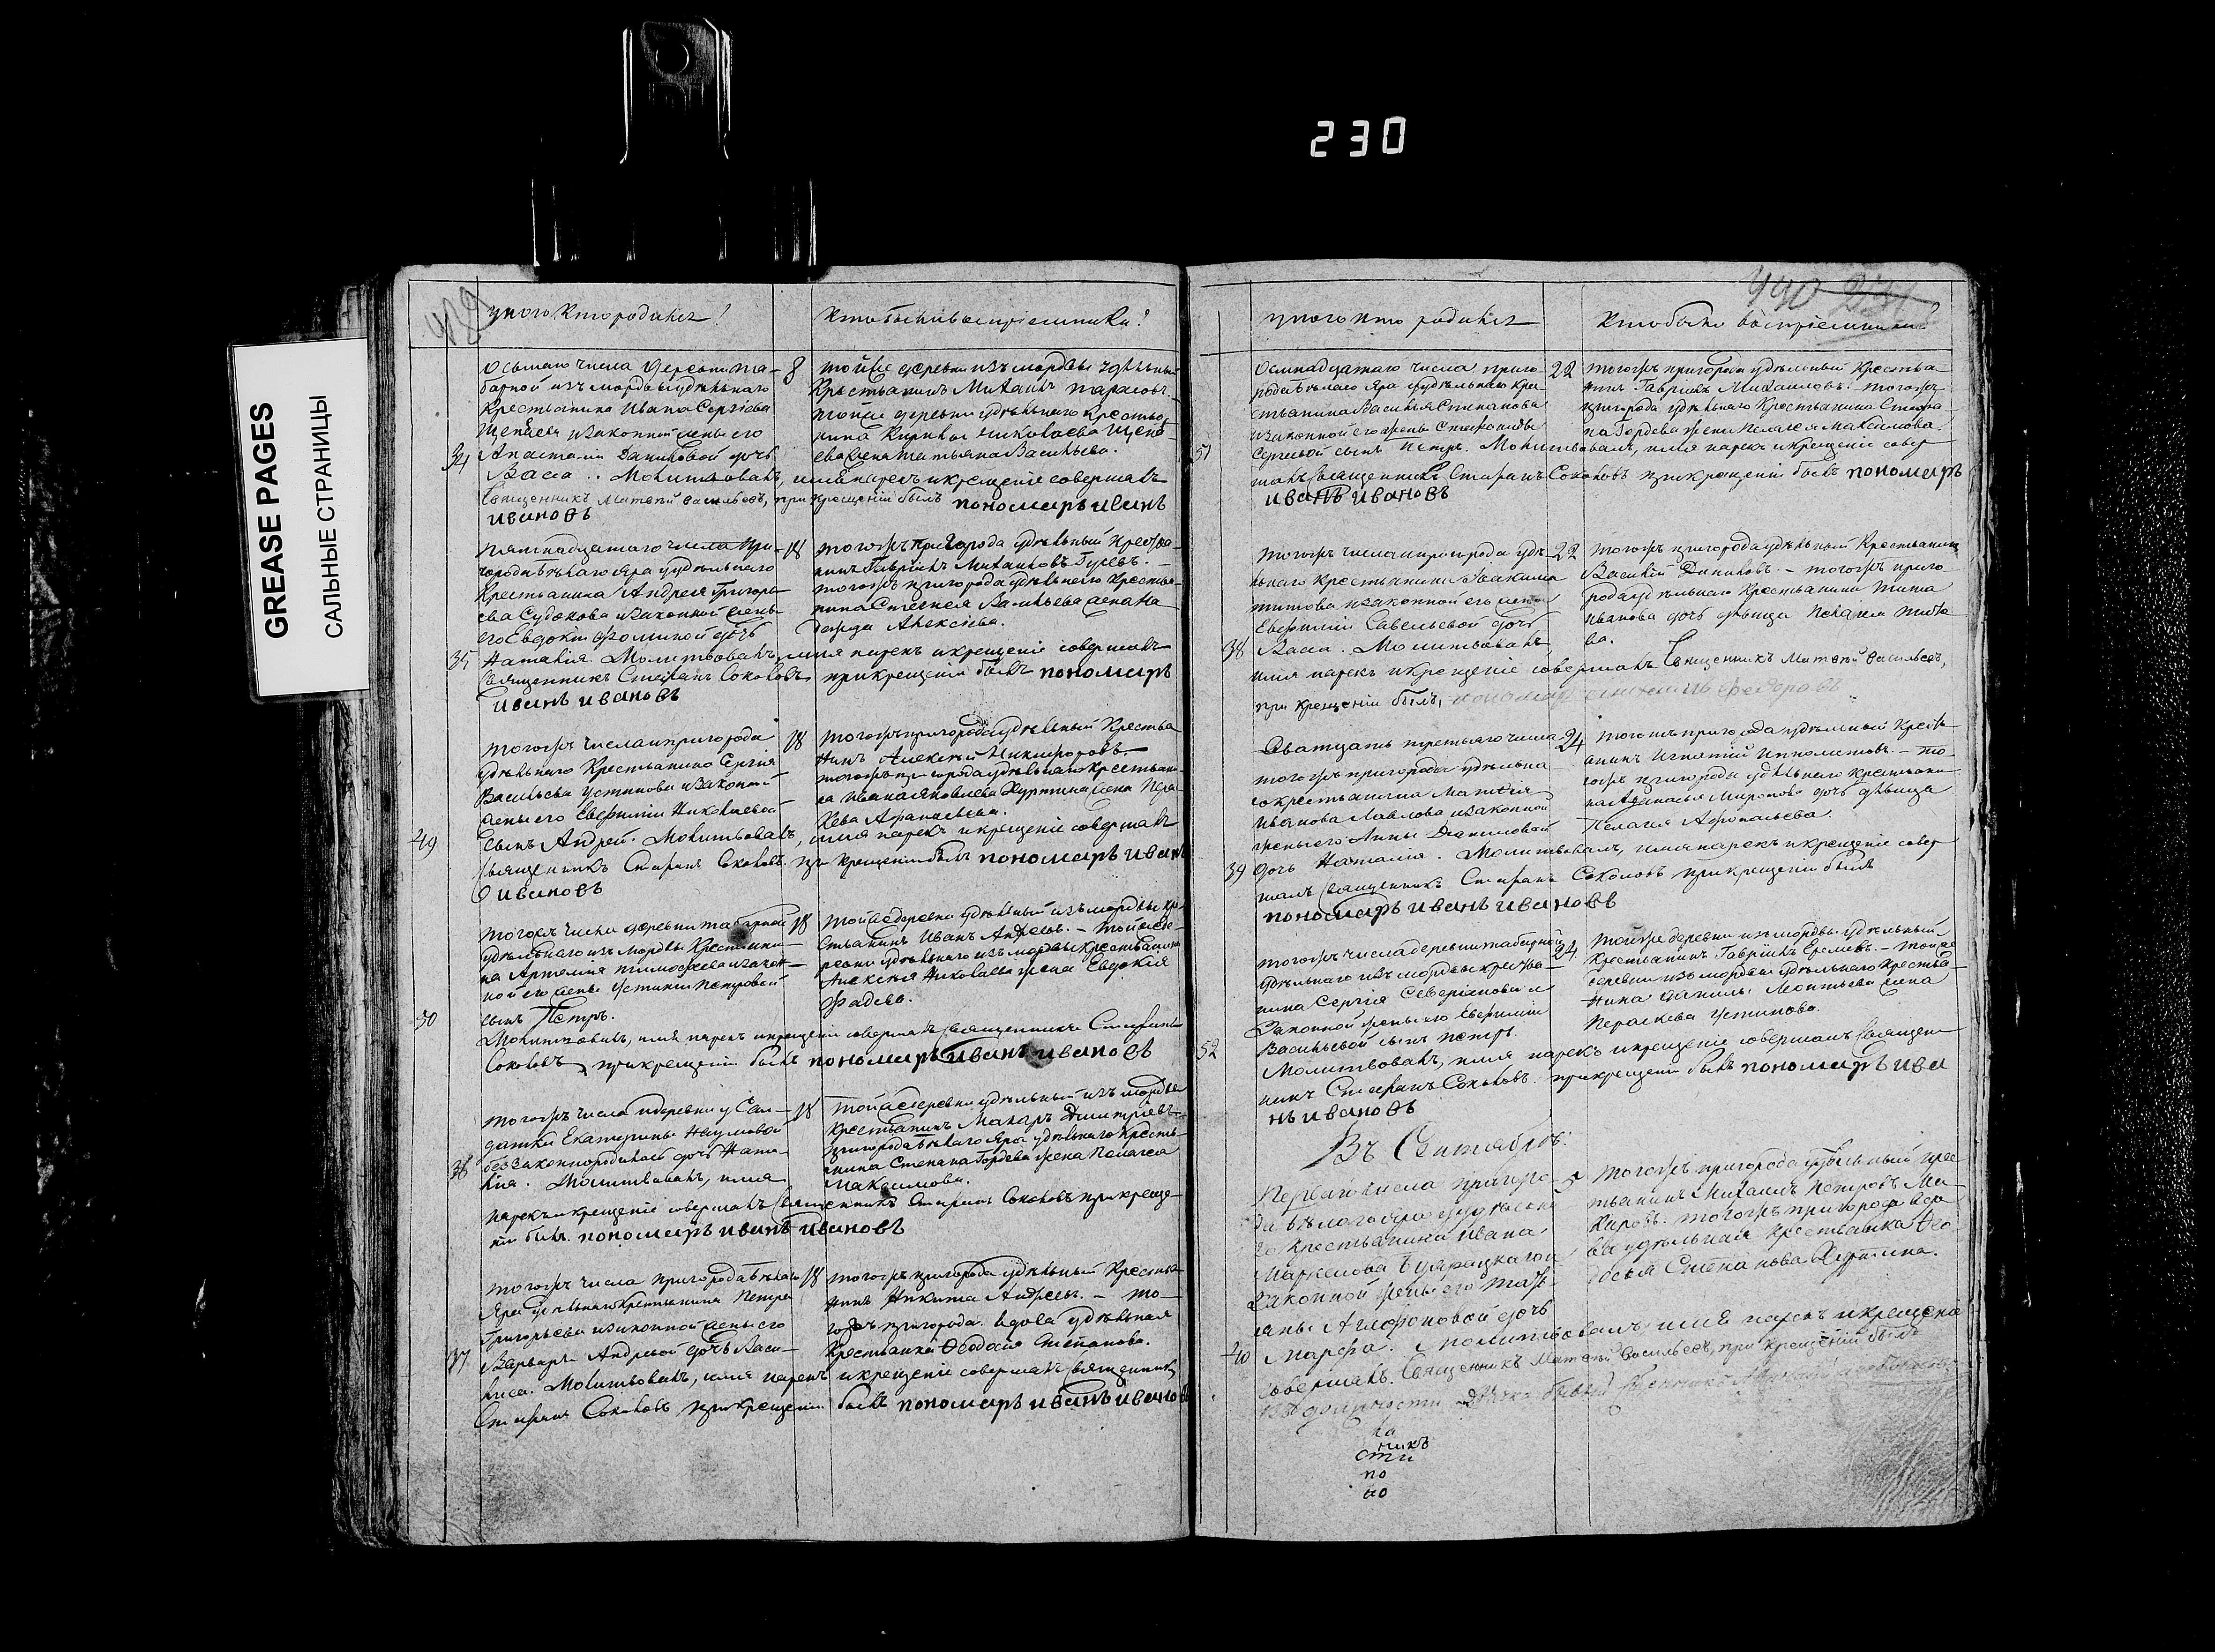 230
GREASE PAGES
САЛЬНЫЕ СТРАНИЦЫ
489
у кого кто родился?
кто были воспріемники?
Осьмаго числа деревни Та-
барной изъ мордвы удѣльнаго
Крестьянина Ивана Сергіева
Щепаева и законной жены его
34
Анастасіи Даниловой дочь
Васса. Молитвовалъ, имя нарекъ и крещеніе совершалъ
Священникъ Матвѣй Васильевъ, при крещеніи былъ пономарь иванъ
ивановъ
8
тойже деревни изъ мордвы удѣльный
Крестьянинъ Михаилъ Тарасовъ.
тойже деревни удѣльнаго Крестья-
нина Кирилы Николаева Щепа-
ева жена Татьяна Васильева.
Пятнадцатаго числа При-
города Бѣлаго Яра у удѣльнаго
Крестьянина Андрея Григорь-
ева Судакова и законной жены
его Евдокіи Фоминой дочь
35
Наталія. Молитвовалъ, имя нарекъ и крещеніе совершалъ
Священникъ Стефанъ Соколовъ при крещеніи былъ пономарь
иванъ ивановъ
18
тогожъ Пригорода удѣльный Крестья-
нинъ Гавріилъ Михаиловъ Гусевъ.
тогожъ пригорода удѣльнаго Крестья-
нина Васильева жена На
дежда Алексіева.
Тогожъ числа и пригорода
удѣльнаго Крестьянина Сергія
Васильева Устинова и законой
жены его Евфиміи Николаевой
49
Сынъ Андрей. Молитвовалъ, имя нарекъ и крещеніе совершалъ
Священникъ Стефанъ Соколовъ. при крещеніи былъ пономарь иванъ
ивановъ
18
тогожъ пригорода удѣльный Крестья
нинъ Алексѣй Никифоровъ.
тогожъ пригорода удѣльнаго крестьяни-
на Ивана Яковлева жена Пара-
кева Афанасьева.
Тогожъ числа деревни табарной
удѣльнаго изъ мордвы Крестьяни-
на Артемія Тимофеева и закон-
ной его жены Устиніи Петровой
50
сынъ Петръ.
Молитвовалъ, имя нарекъ и крещеніе совершалъ Священникъ Стефанъ
Соколовъ, при крещеніи былъ пономарь иванъ ивановъ
18
тойже деревни удѣльный изъ мордвы кре-
стьянинъ Иванъ Андреевъ. – Тойже де-
ревни удѣльнаго изъ мордвы крестьянина
Алексѣя Николаева жена Евдокія
Фадева.
Тогожъ числа и деревни у Сол-
датки Екатерины Наумовой
беззаконнорожденная дочь Ната-
36
лія. Молитвовалъ, имя
нарекъ и крещеніе совершалъ Священникъ Стефанъ Соколовъ при креще-
ніи былъ. пономарь иванъ ивановъ
18
Тойже деревни удѣльный изъ мордвы
Крестьянинъ Макаръ Дмитріевъ.
пригорода Бѣлаго Яра удѣльнаго Кресть-
янина Степана Гордѣева жена Пелагея
Максимова.
Тогожъ числа пригорода Бѣлаго
Яра удѣльнаго Крестьянина Петра
Григорьева и законной жены его
Варвары Андреевой дочь Васи-
37
лиса. Молитвовалъ, имя нарекъ и крещеніе совершалъ Священникъ
Стефанъ Соколовъ при крещеніи былъ пономарь иванъ ивановъ
18
тогожъ пригорода удѣльный Крестья-
нинъ Никита Андреевъ. – То-
гожъ пригорода. вдова удѣльная
Крестьянка Ѳеодосія Степанова.
490
231
у кого кто родился
кто были воспріемники?
Осмнадцатаго числа приго-
рода Бѣлаго Яра у удѣльнаго Кре
стьянина Василья Степанова
и законной его жены Стефаниды
51
Сергіевой сынъ Петръ. Молитвовалъ, имя нарекъ и крещеніе совер
шалъ Священникъ Стефанъ Соколовъ при крещеніи былъ пономарь
иванъ ивановъ
22
тогожъ пригорода удѣльный Крестья
нинъ Гавріилъ Михаиловъ. тогожъ
пригорода удѣльнаго Крестьянина Степа-
на Гордѣева жена Пелагея Максимова.
Тогожъ числа и пригорода удѣ-
льнаго Крестьянина Іоакима
Титова и законной его жены
Евфиміи Савельевой дочь
38
Васса. Молитвовалъ,
имя нарекъ и крещеніе совершалъ Священникъ Матвѣй Васильевъ,
при крещеніи былъ, пономарь Федоровъ
22
Тогожъ пригорода удѣльный Крестьянинъ
Василій Даниловъ. – тогожъ приго
рода удѣльнаго Крестьянина Тита
Иванова дочь дѣвица Пелагея Тито
ва.
Дватцать третьяго числа
тогожъ пригорода удѣльна-
го крестьянина Матвія
Иванова Павлова и законной
жены его Анны Даниловой
39
дочь Наталія. Молитвовалъ, имя нарекъ и крещеніе совер
шалъ Священникъ Стефанъ Соколовъ при крещеніи былъ
пономарь иванъ ивановъ
24
тогожъ пригорода удѣльный Кресть-
янинъ Игнатій Ипполитовъ. – То-
гожъ пригорода удѣльнаго крестьяни-
на Афанасья Миронова дочь дѣвица
Пелагея Афонасьева.
Тогожъ числа деревни табарной
удѣльнаго изъ мордвы крестья-
нина Сергія Северіянова и
Законной жены его Евфиміи
Васильевой сынъ Петръ.
52
Молитвовалъ, имя нарекъ и крещеніе совершалъ Священ
никъ Стефанъ Соколовъ. при крещеніи былъ пономарь ива
нъ ивановъ
24
Тойже деревни изъ мордвы удѣльный
Крестьянинъ Гавріилъ Еремѣевъ. – Тойже
деревни изъ мордвы удѣльнаго Крестья-
нина Данилы Леонтьева жена
Параскева Устинова.
Въ Сентябрѣ:
Перваго числа пригоро-
да Бѣлаго Яра у удѣльна-
го крестьянина Ивана
Маркелова и
законной жены его Тать-
яны Агафоновой дочь
40
Марфа. Молитвовалъ имя нарекъ и крещеніе
совершалъ. Священникъ Матвѣй Васильевъ, при крещеніи былъ
въ должности
5
Тогожъ пригорода удѣльный крес
тьянинъ Михаилъ Петровъ Ма-
каровъ. тогожъ пригорода вдо
ва удѣльная крестьянка Ѳео
досья Степанова
ка
никъ
сти
по
но